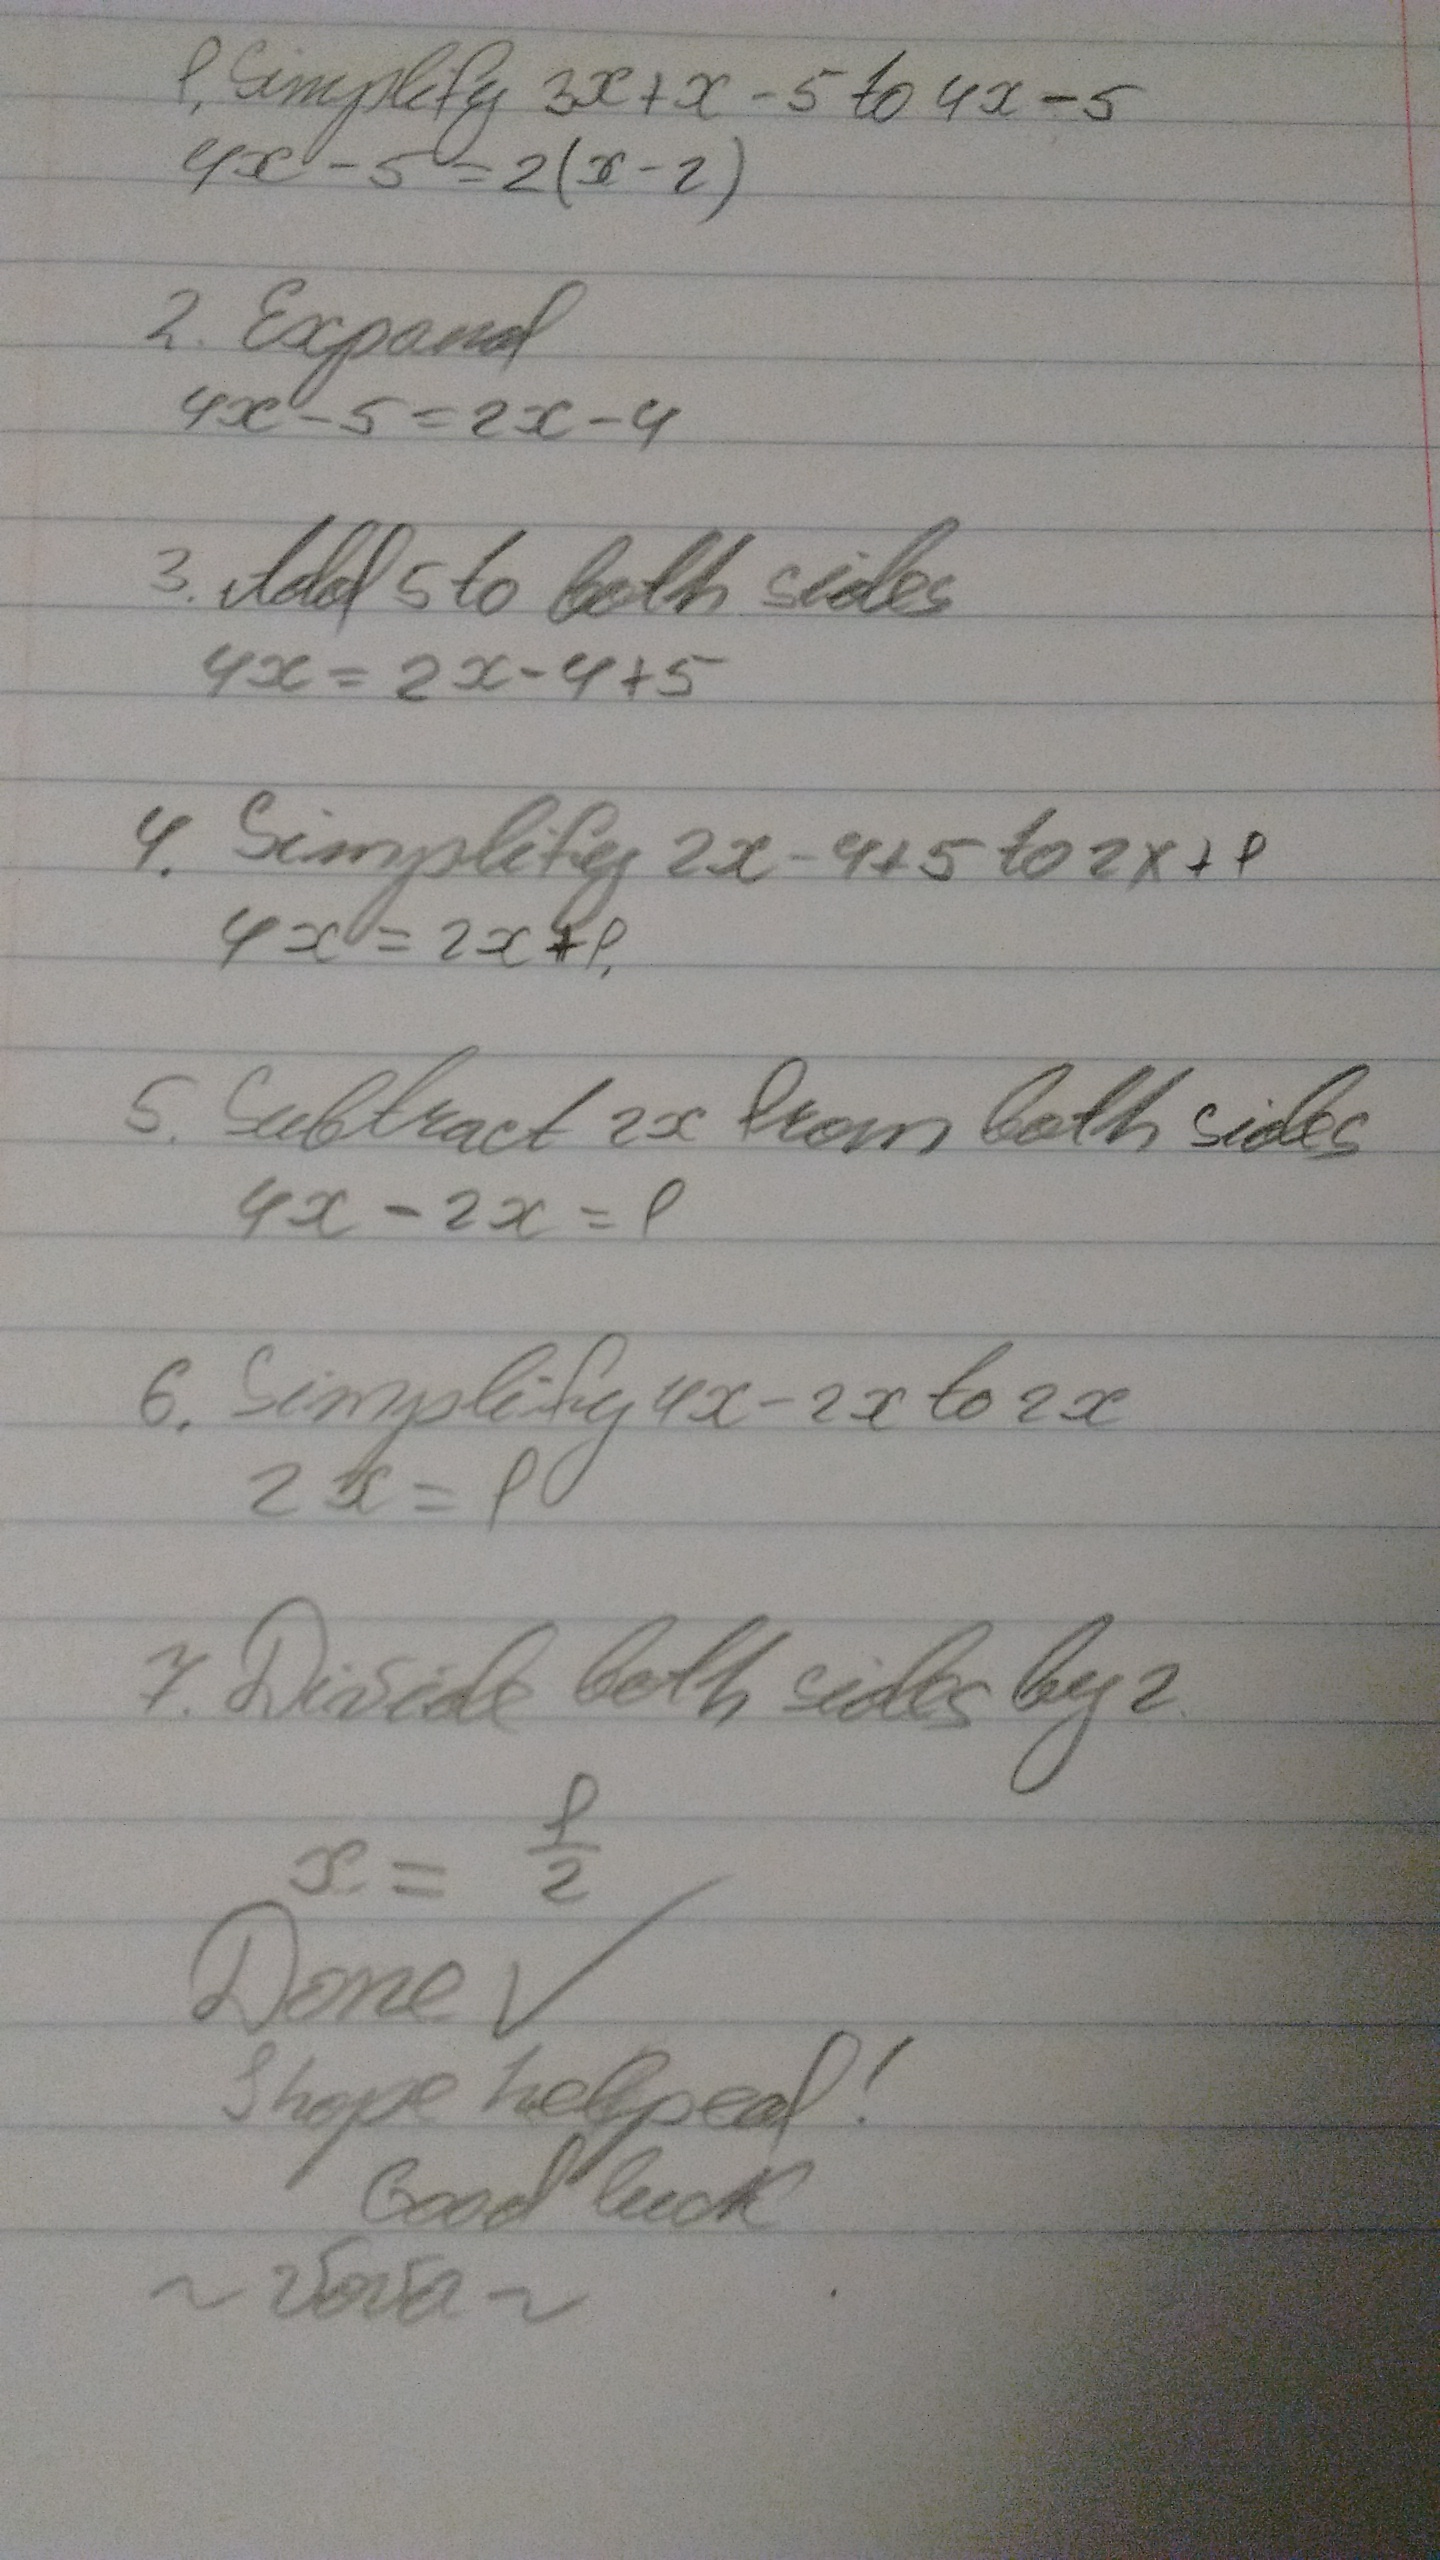 1. Simplify 3x+x-5 to 4x-5
4x-5=2(x-2)
2. Expand
4x-5=2x-4
3. Add 5 to both sides
4x=2x-4+5
4. Simplify 2x-4+5 to 2x+1
4x=2x+1
5. Subtract 2x from both sides
4x-2x=1
6. Simplify 4x-2x to 2x
2x=1
7. Divide both sides by 2
x=1/2
Done ✓
I hope helped!
Good luck
~ Vova ~